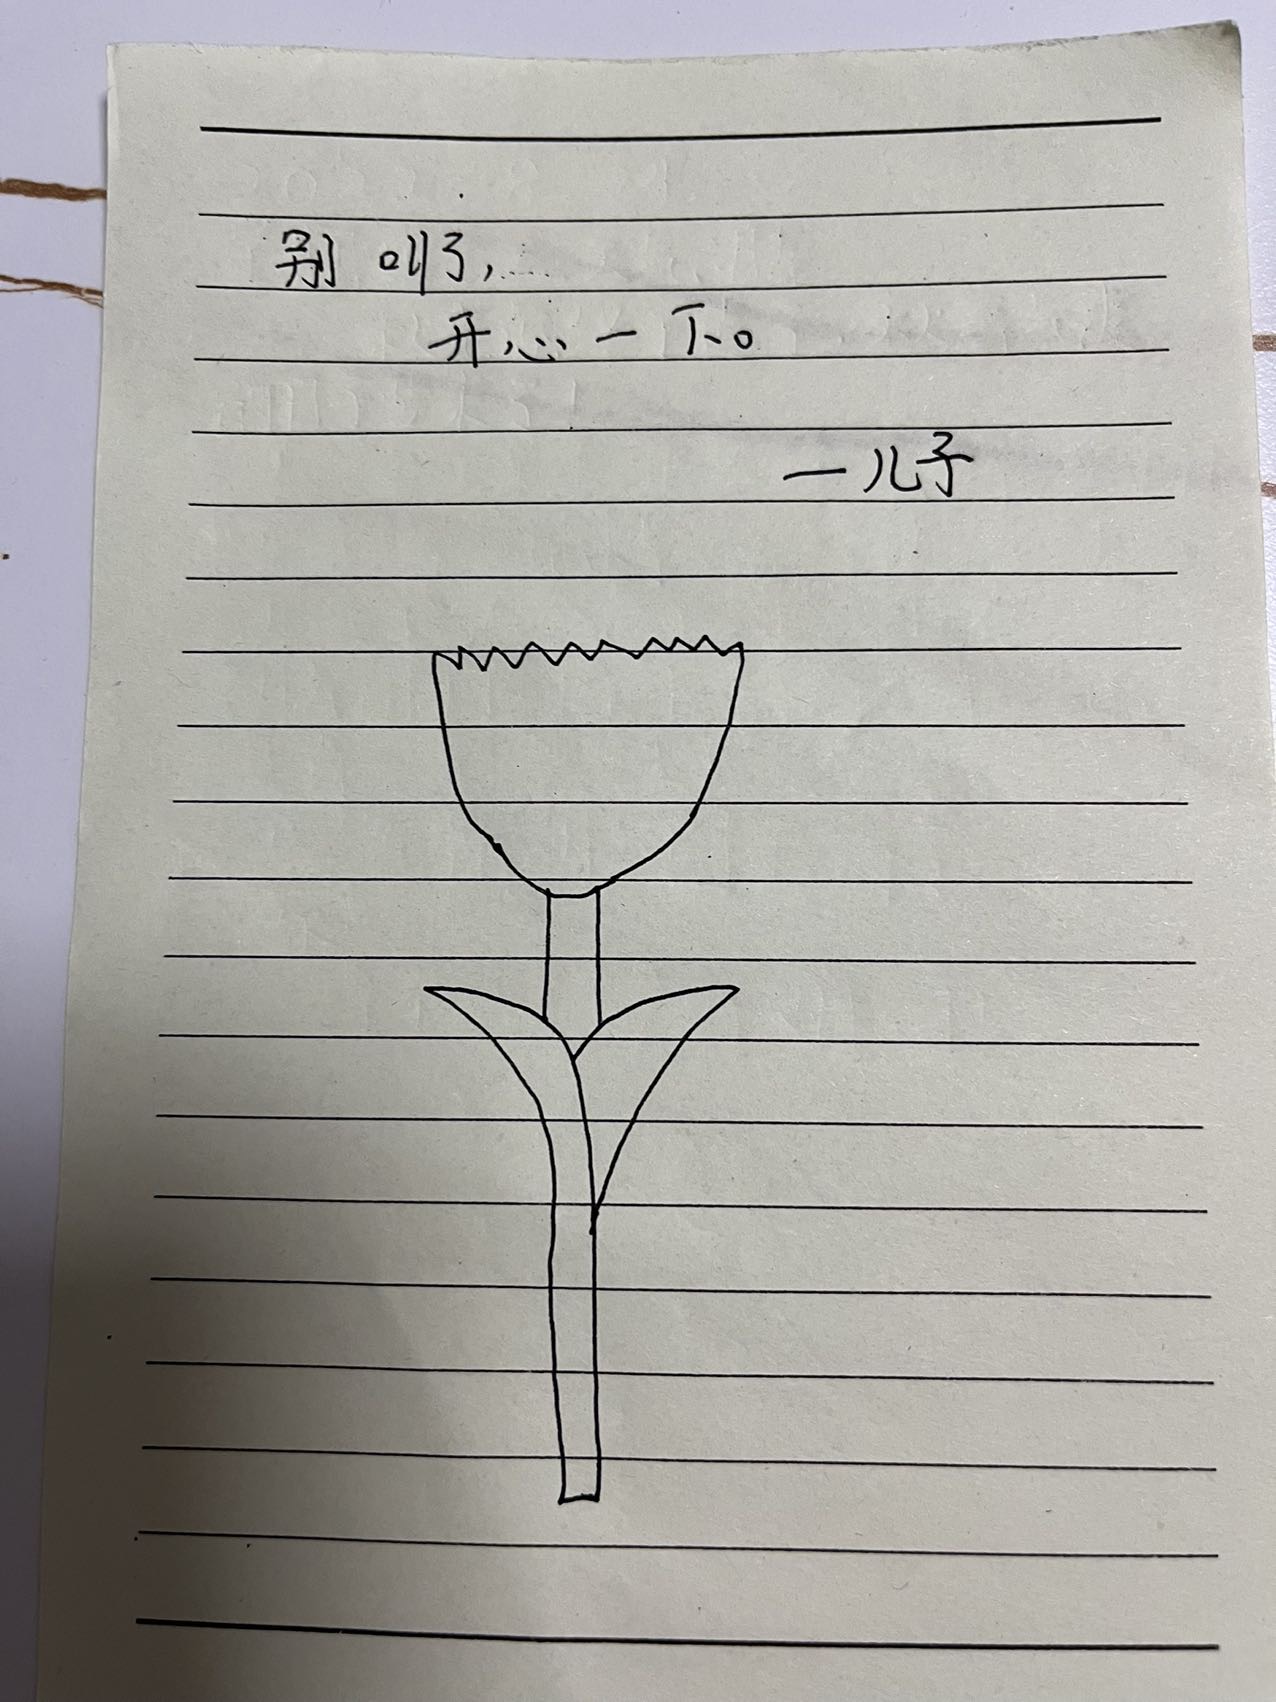 别叫了,
开心一下。
—儿子